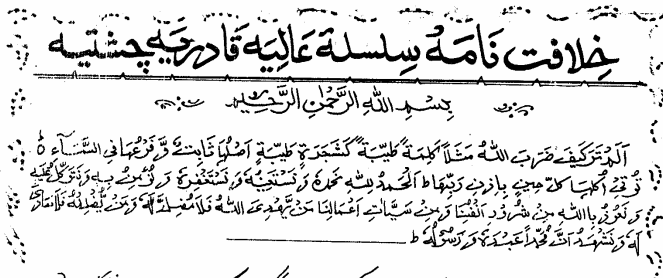 خلافت نامہ سلسلۂ عالیہ قادریہ چشتیہ
بسم اللہ الرحمٰن الرحیم
الم تر کیف ضرب اللہ مثلاً کلمة طیبة کشجرة طیبة اصلها ثابت و فرعها فی السماء ہ
توتی اکلها کل حین باذن ربها ط الحمد للہ نحمدہ و نستعینہ و نستغفرہ و نؤمن بہ و نتوکل علیہ
و نعوذ باللہ من شرور انفسنا و من سیئات اعمالنا من یهد اللہ فلا مضل لہ و من یضللہ فلا هادی
لہ و نشهد ان محمداً عبدہ و رسولہ ط